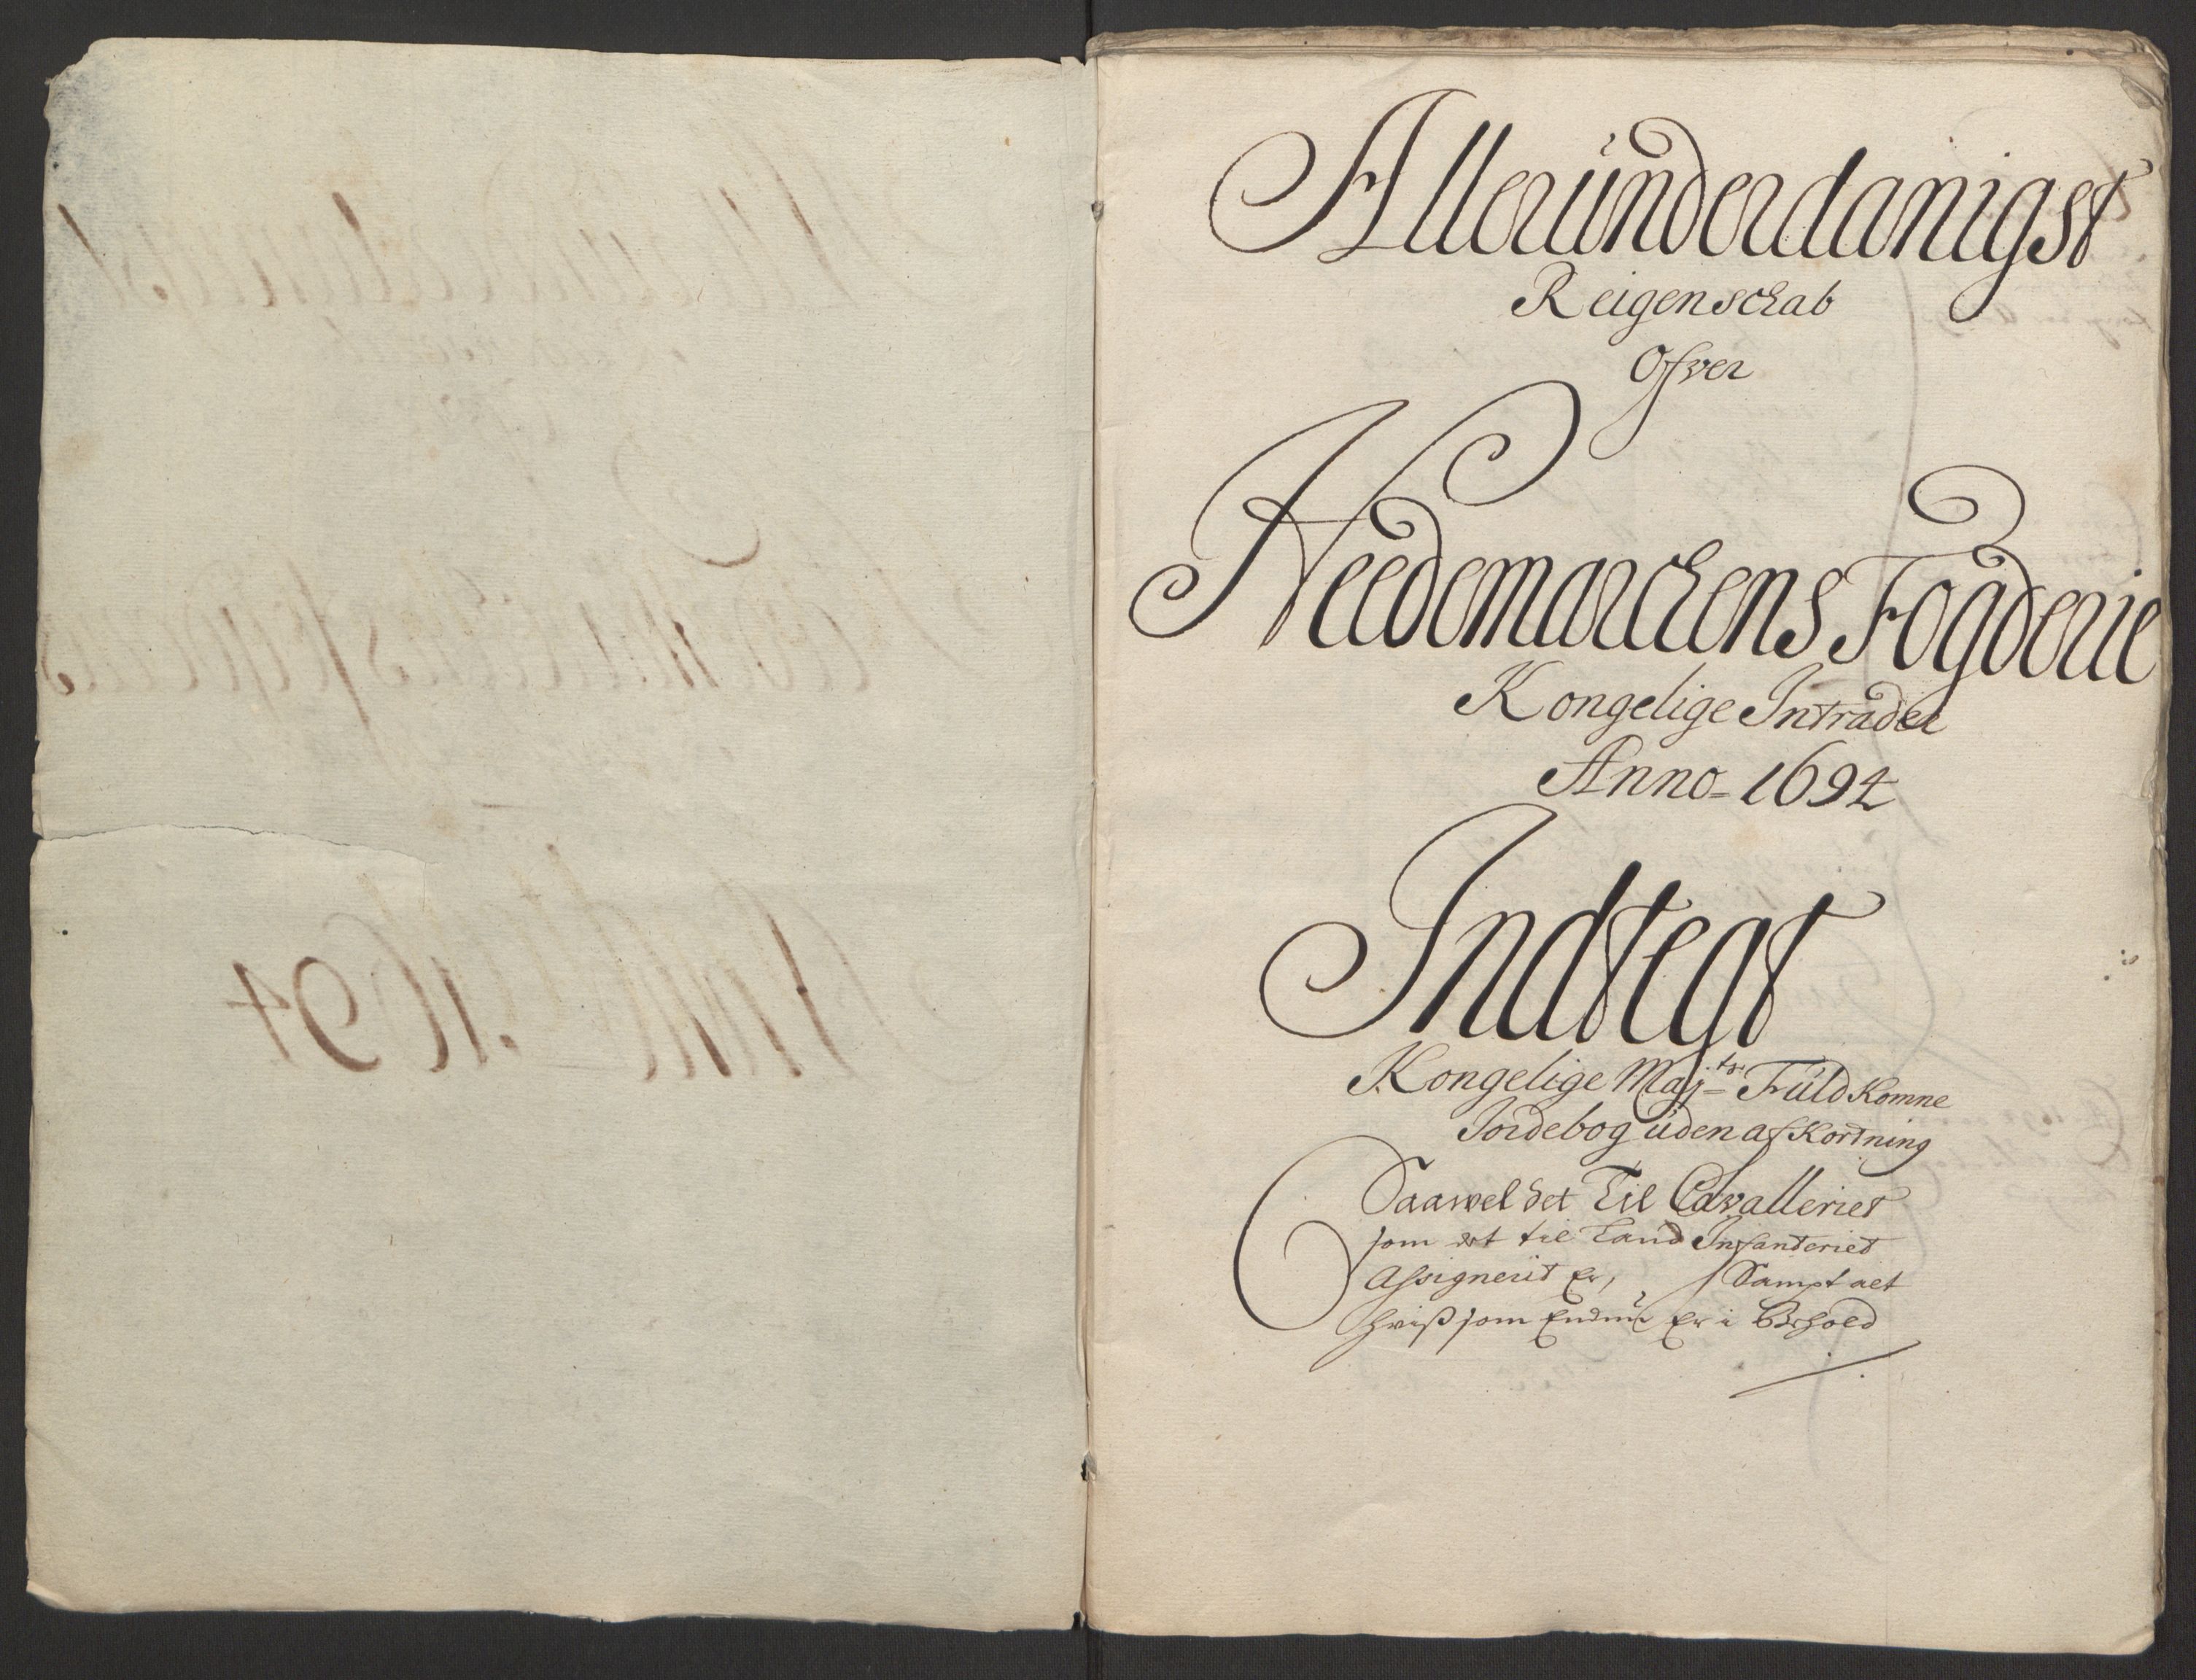 Alleründerdanigst
Reigenschab
Ofver
Heedemarckens Fogderie
Kongelige Intrader
Anno 1694
Indtegt
Kongelige Maj:ts Füldkomne
Jordebog üden afkortning
Saawel det Til Cavalleriet
som det til Land Infanteriet
Assignerit Er, Sampt alt
hviß som Endnü Er i Behold